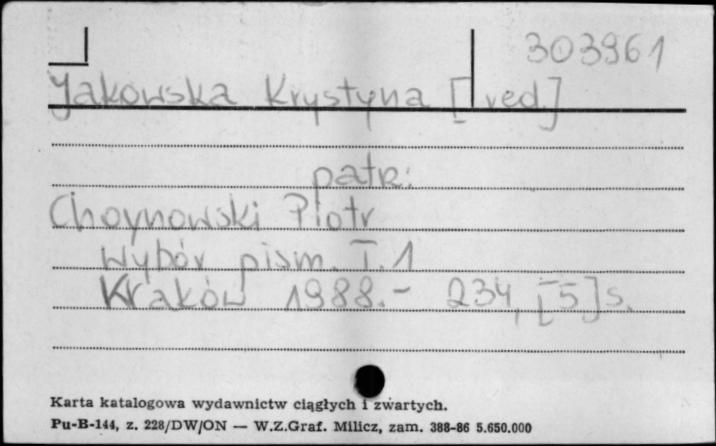 303961
Jakowska Krystyna [red.]
patrz:
Choynowski Piotr
Wybór pism. T. 1
Kraków 1988.- 234, [5] s.
Karta katalogowa wydawnictw ciągłych i zwartych.
Pu-B-144, z. 228/DW/ON — W.Z.Graf. Milicz, zam. 388-86 5.650.000